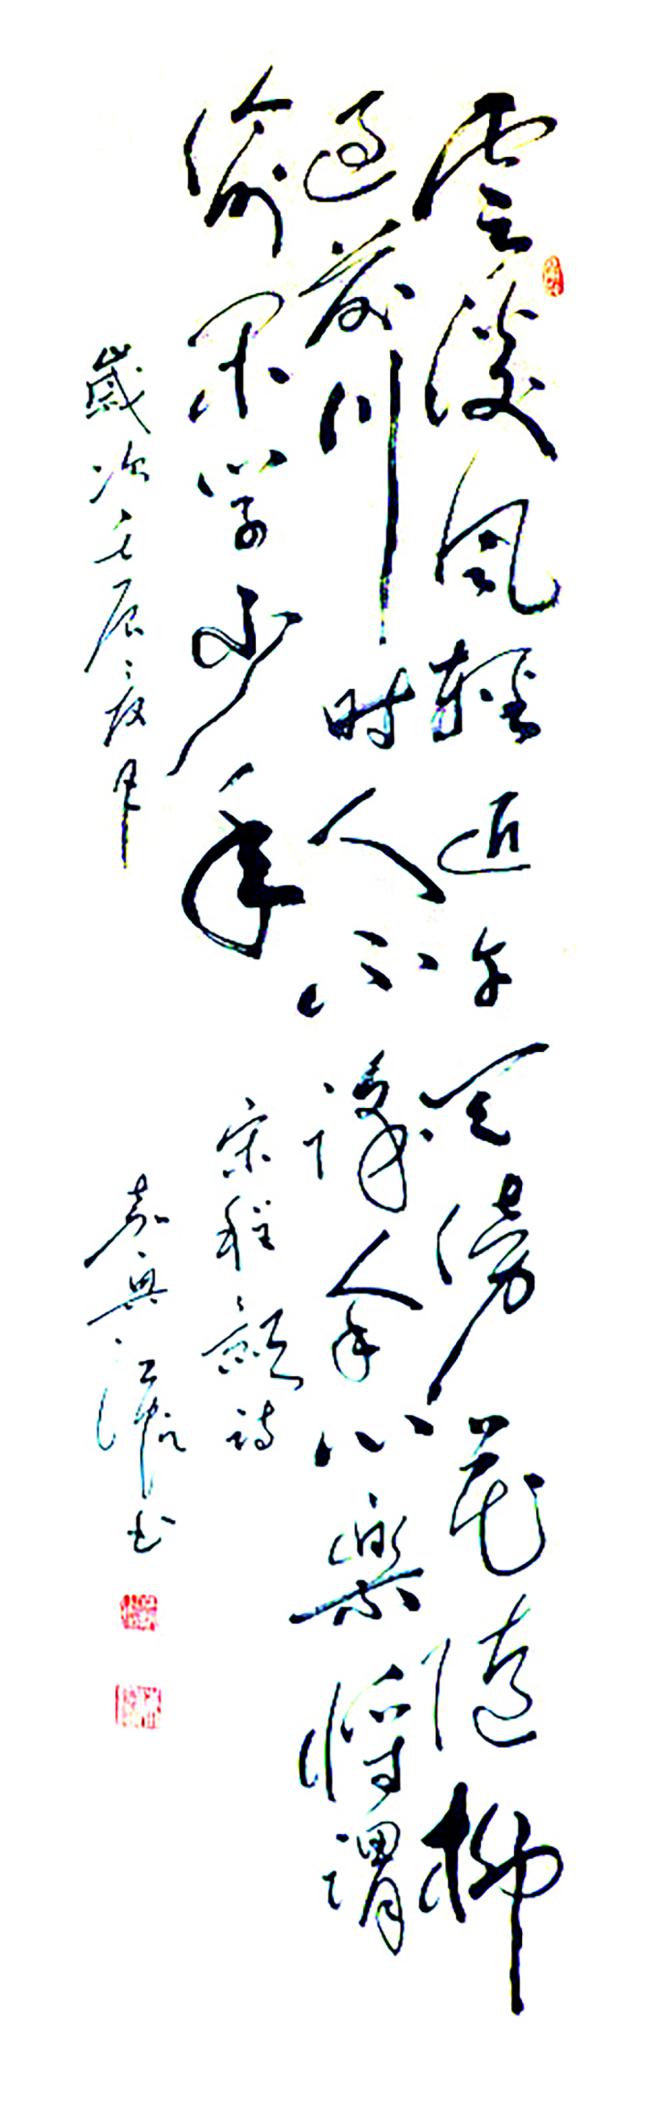 雲淡風輕近午天傍花隨柳
過前川时人不識余心樂將謂
偷閑学少年 宋程顥詩
歲次壬辰夏月 嘉興江书